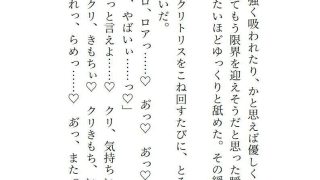 強く吸われたり、かと思えば優しく
てもう限界を迎えそうだと思った瞬
たいほどゆっくりと舐めた。その緩
クリトリスをこね回すたびに、とろ
いだ。
ロ、ロアっ……♡ お゛っ♡ お゛っ♡
、やばぃ……っ♡」
っと言えよ……♡ クリ、気持ちい
クリ、きもちぃ♡ クリきもち、
れっ、らめっ……♡ お゛っ、また